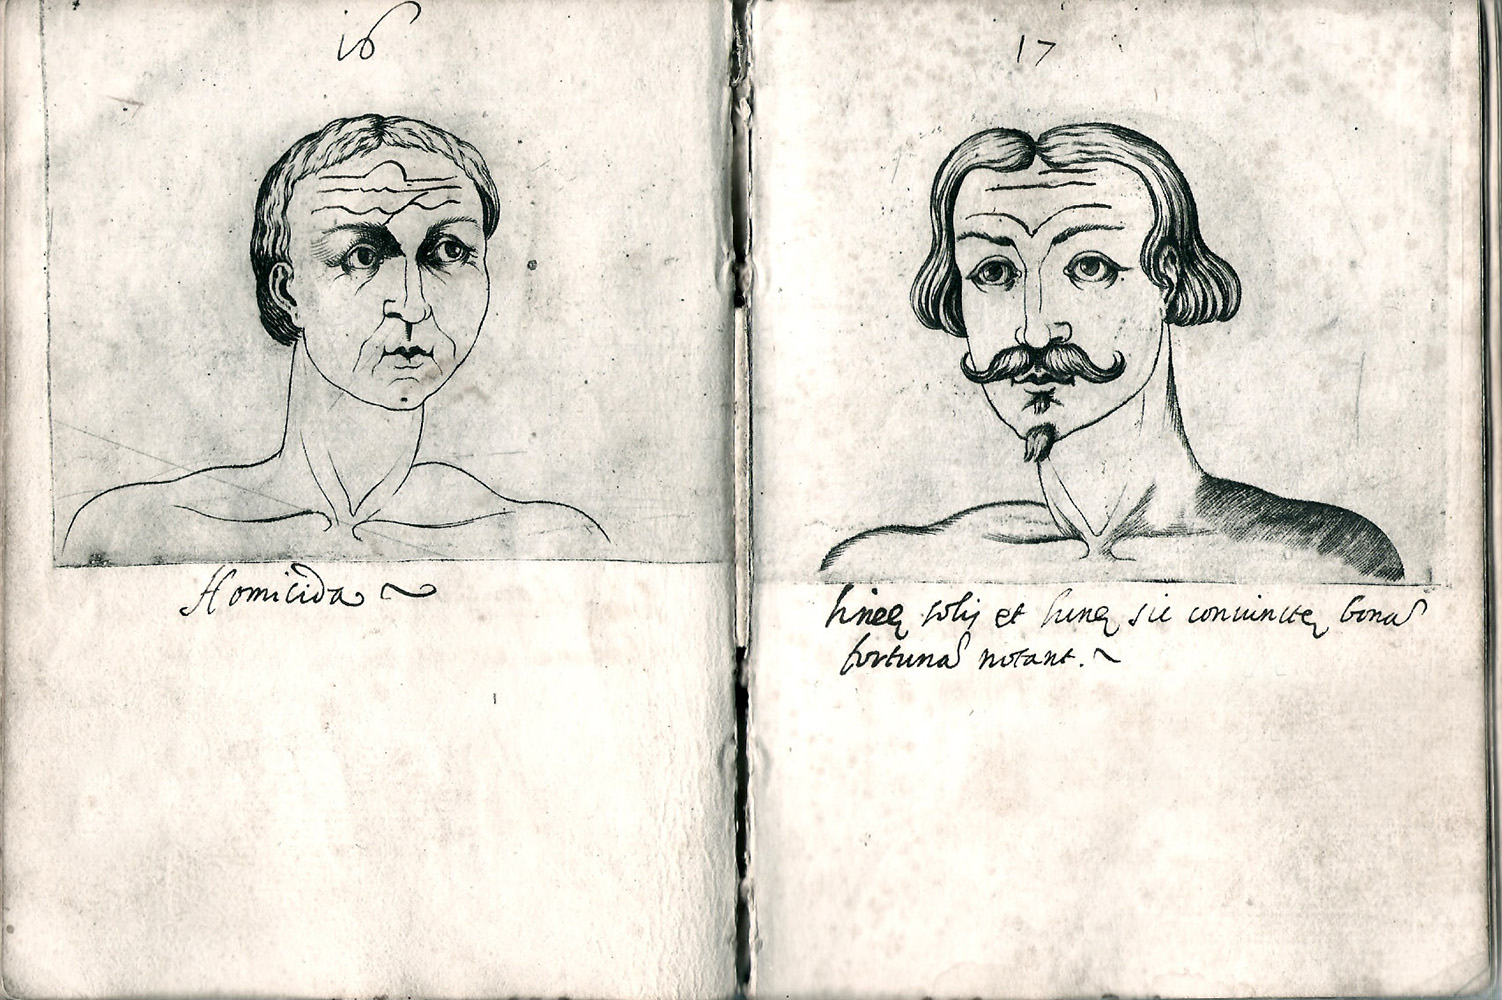 16
Homicida
17
Lineę solis et Lunę sic coniunctę bonā
fortunā notant.